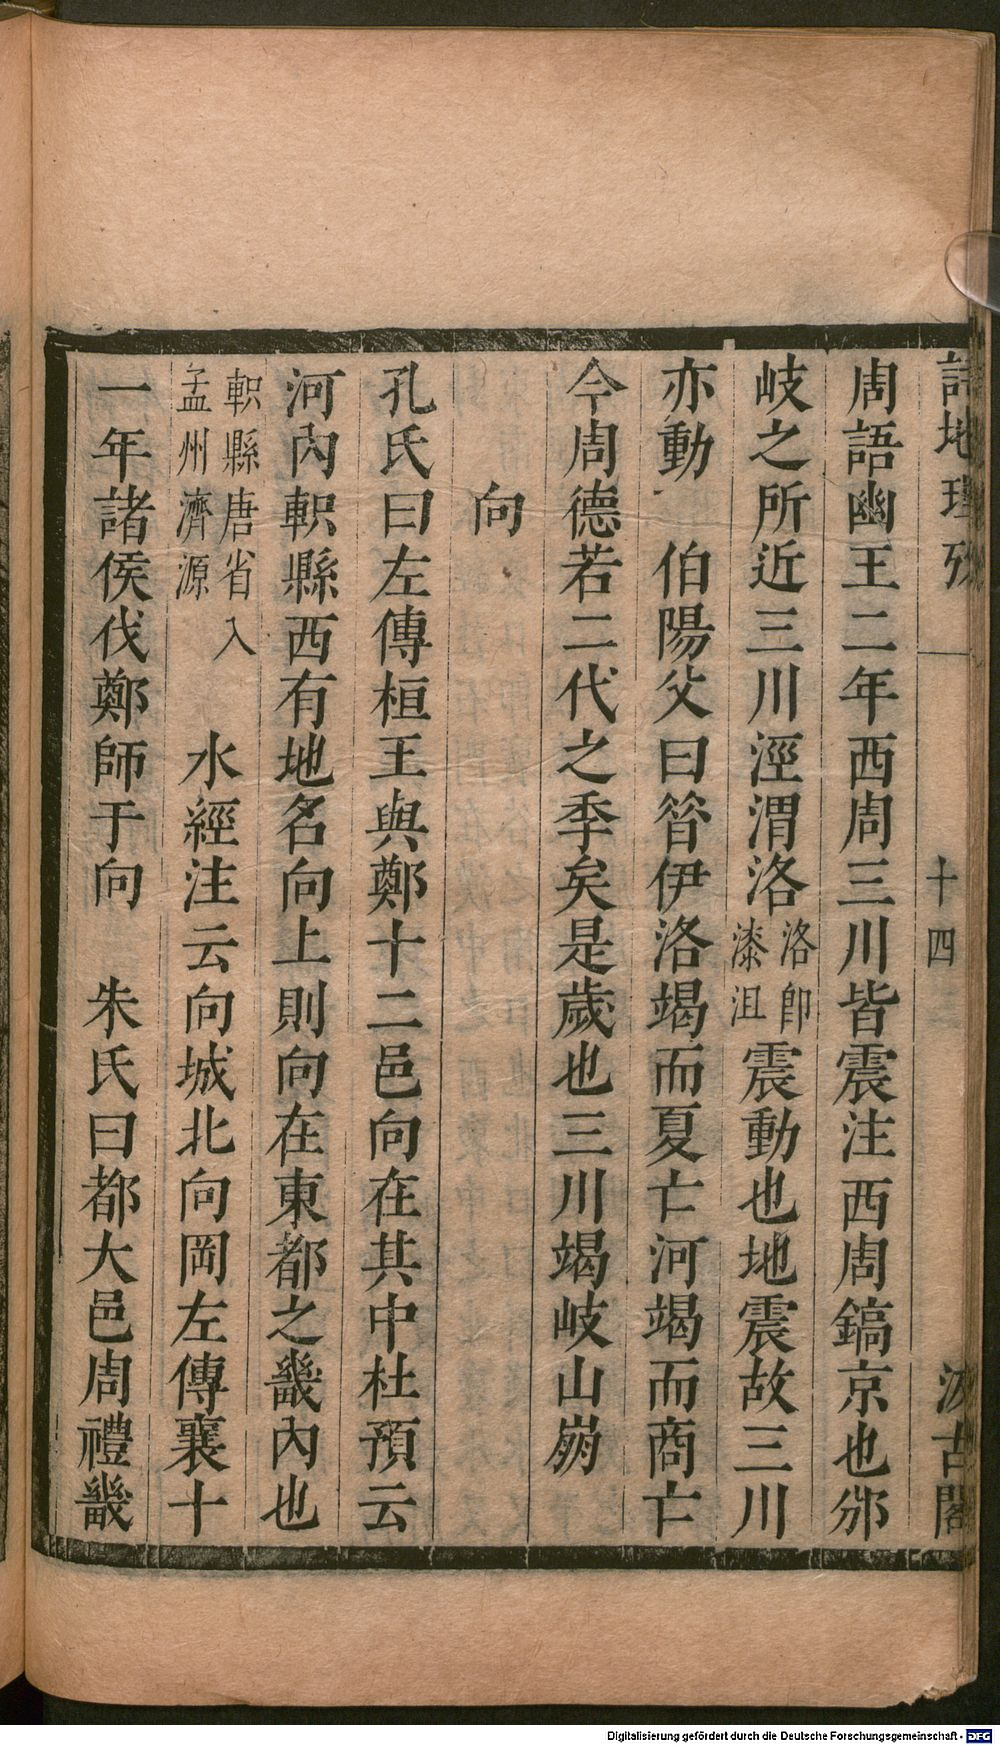 詩地理攷 十四 汲古閣
周語幽王二年西周三川皆震注西周鎬京也邠
岐之所近三川涇渭洛洛即漆沮震動也地震故三川
亦動 伯陽父曰昔伊洛竭而夏亡河竭而商亡
今周德若二代之季矣是歲也三川竭岐山崩
向
孔氏曰左傳桓王與鄭十二邑向在其中杜預云
河內軹縣西有地名向上則向在東都之畿內也
軹縣唐省入孟州濟源 水經注云向城北向岡左傳襄十
一年諸侯伐鄭師于向 朱氏曰都大邑周禮畿
Digitalisierung gefördert durch die Deutsche Forschungsgemeinschaft - DFG